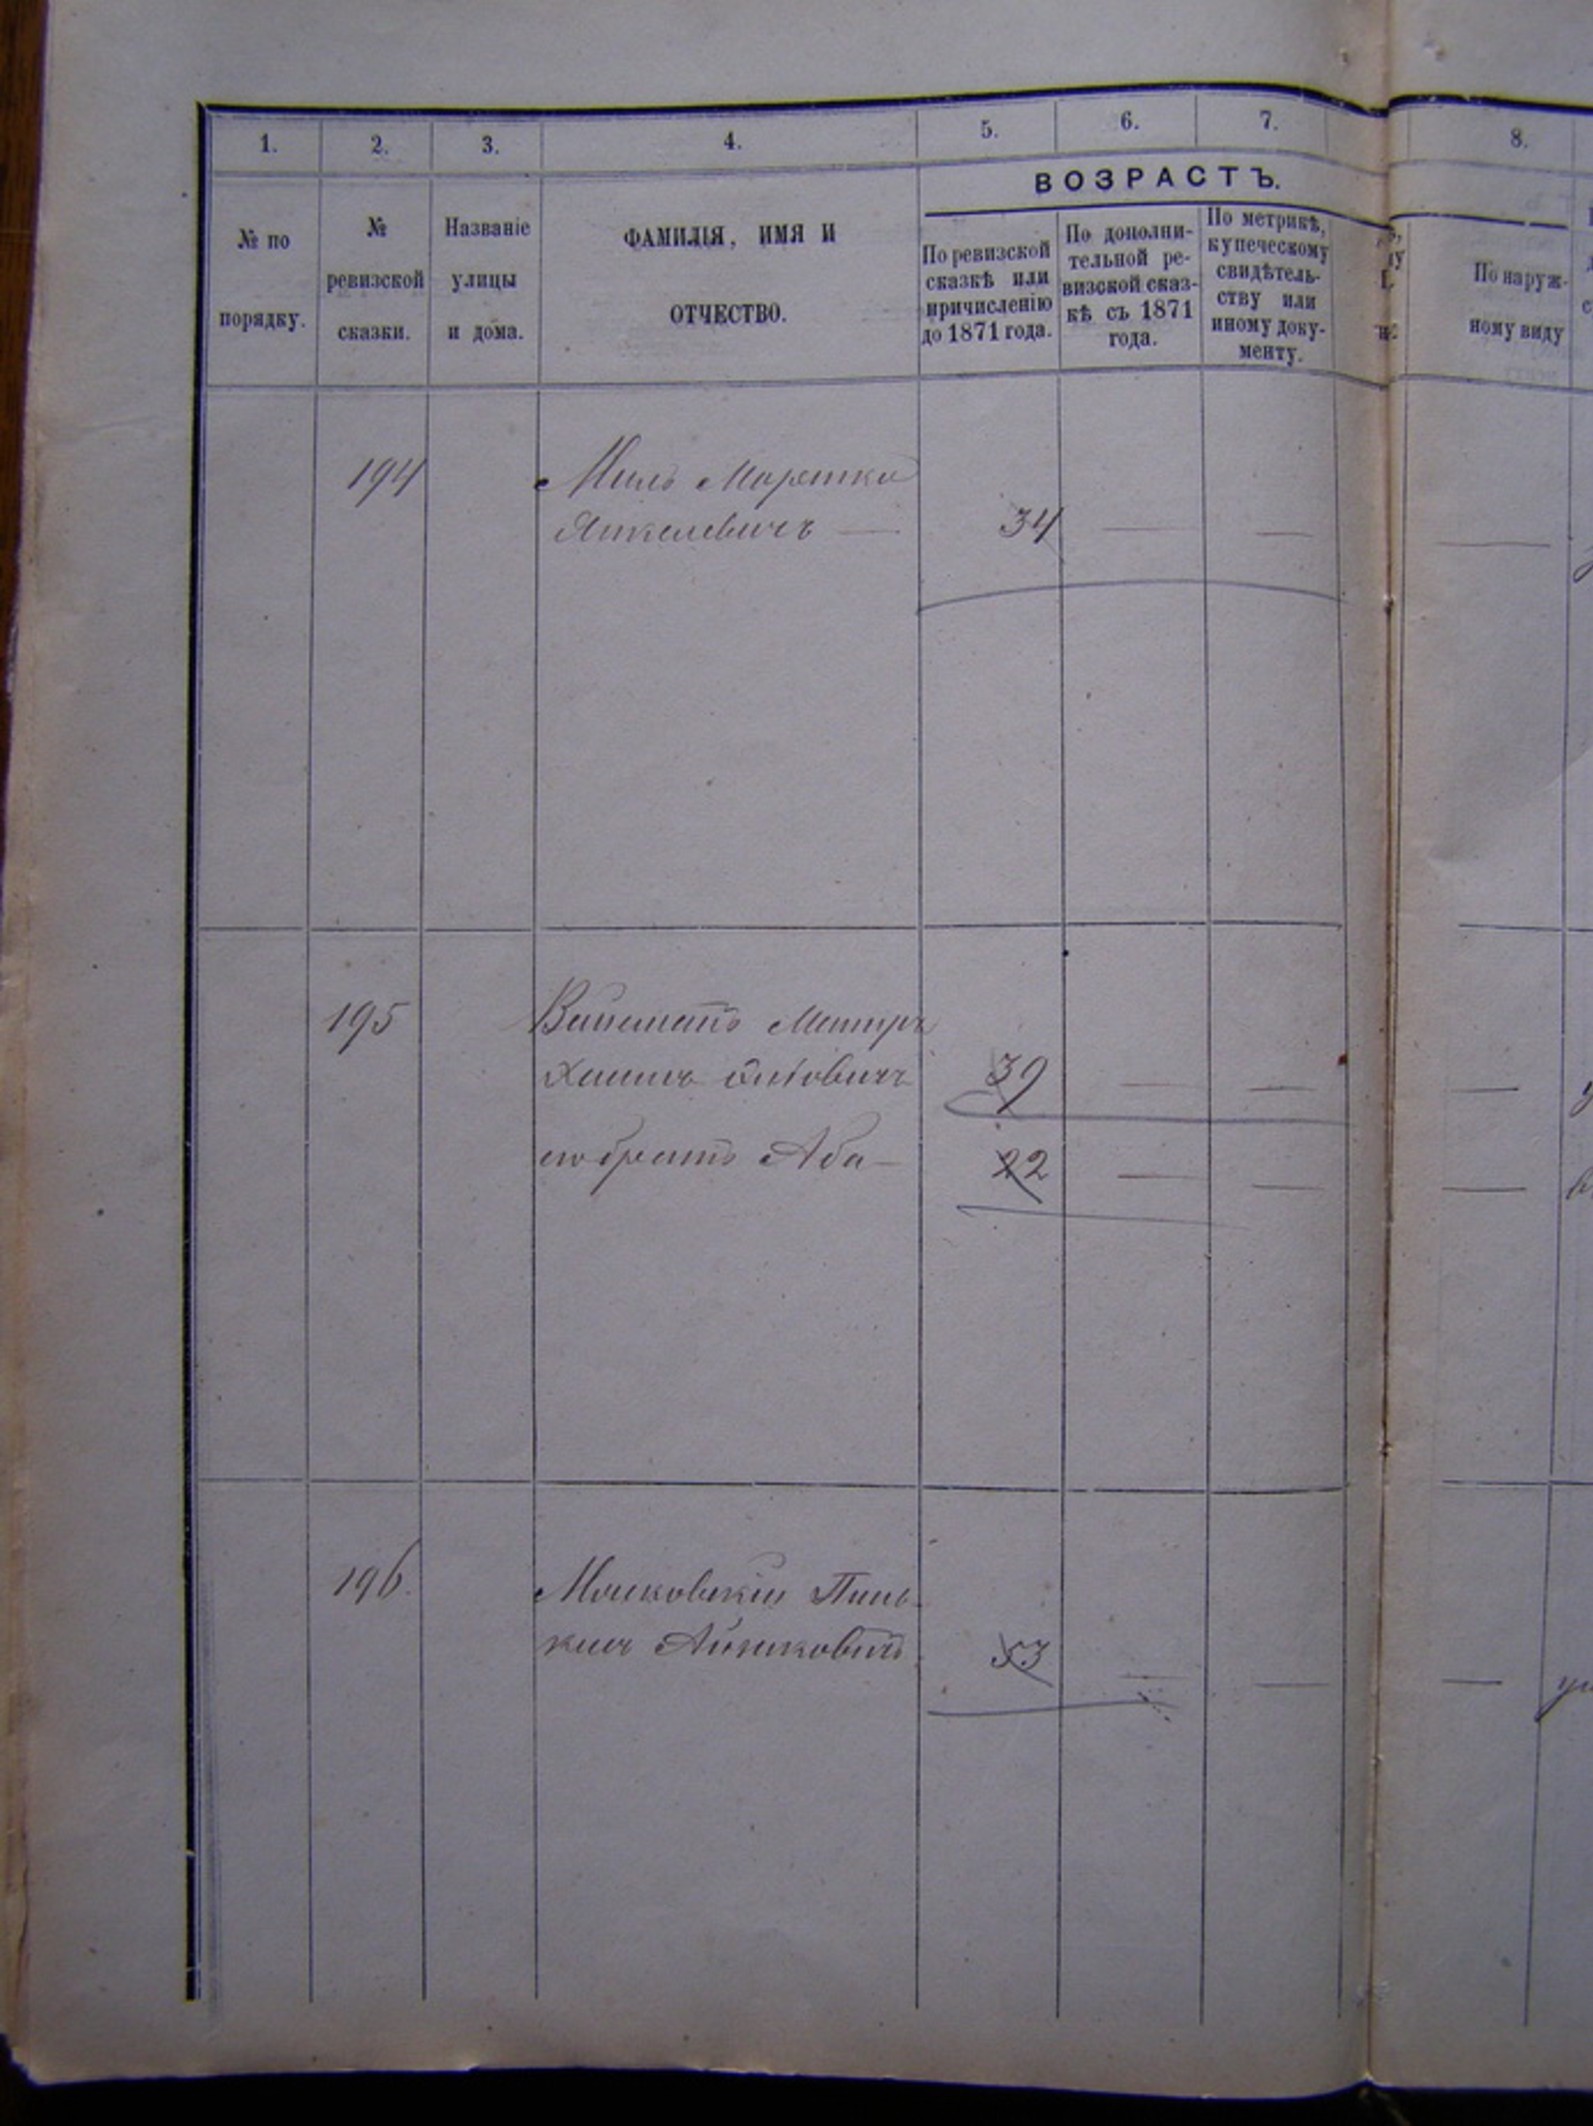 1. 2. 3. 4. 5. 6. 7. 8.
ВОЗРАСТЪ.
№ по
порядку.
№
ревизской
сказки.
Названіе
улицы
и дома.
ФАМИЛІЯ, ИМЯ И
ОТЧЕСТВО.
По ревизской
сказкѣ или
причисленію
до 1871 года.
По дополни-
тельной ре-
визской сказ-
кѣ съ 1871
года.
По метрикѣ,
купеческому
свидѣтель-
ству или
иному доку-
менту.
По наруж-
ному виду
194
Миль
Янкелевичъ — 34 — — —
195
39 — — —
братъ Аба — 22 — — —
196.
Пинь-
53 — — —